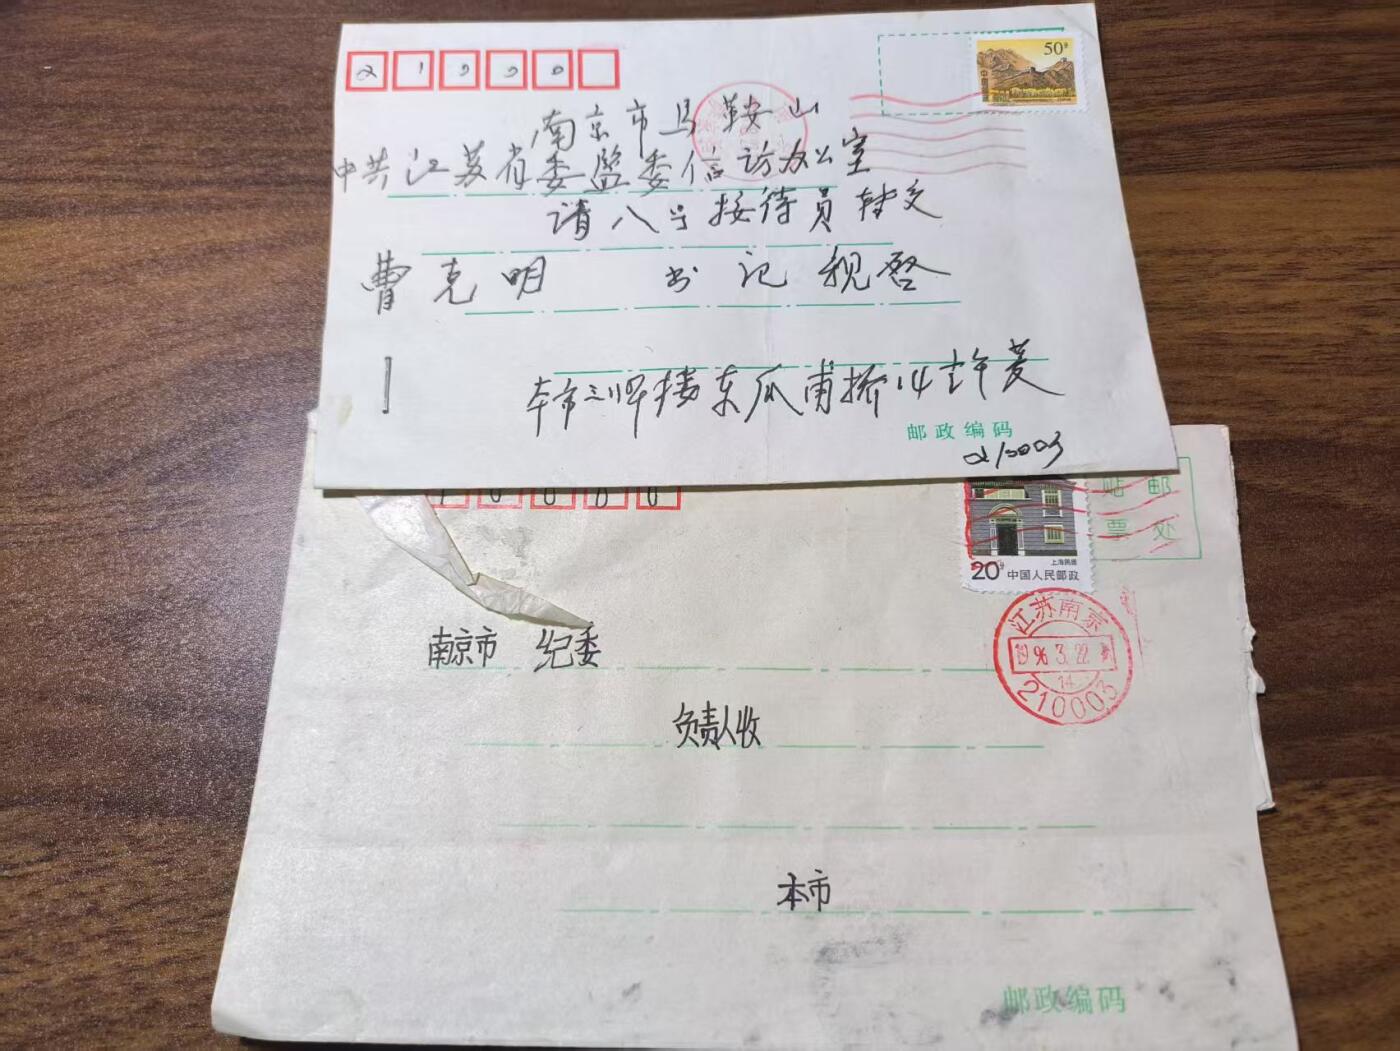 50分
南京市马鞍山
中共江苏省委监委信访办公室
请八号接待员转交
曹克明 书记 亲启
本市三牌楼东瓜甫桥14 许菱
邮政编码
210003
贴邮
票处
上海民居
20分 中国人民邮政
江苏南京
1996.3.22
14
210003
南京市 纪委
负责人收
本市
邮政编码